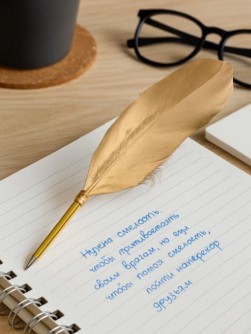 Нужна смелость,
чтобы противостоять
своим врагам, но
чтобы смелость,
пойти наперекор
друзьям